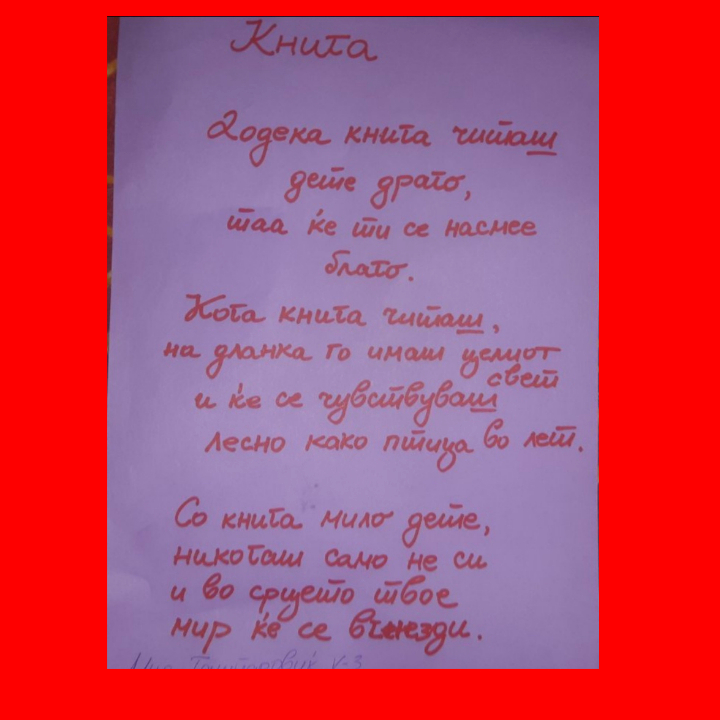 Книга
Додека книга читаш
дете драго,
таа ќе ти се насмее
благо.
Кога книга читаш,
на дланка го имаш целиот
свет
и ќе се чувствуваш
лесно како птица во лет.
Со книга мило дете,
никогаш само не си
и во срцето твое
мир ќе се вгнезди.